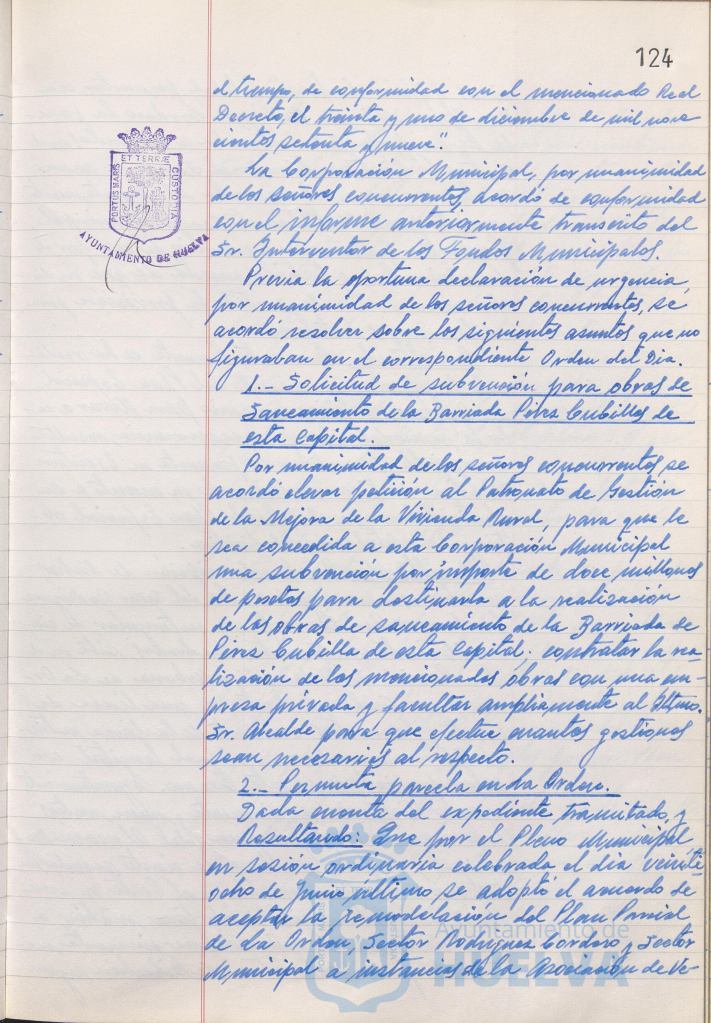 124
el tiempo, de conformidad con el mencionado Real
Decreto, el treinta y uno de diciembre de mil nove
cientos setenta y nueve".
La Corporación Municipal, por unanimidad
de los señores concurrentes, acordó de conformidad
con el informe anteriormente transcrito del
Sr. Interventor de los Fondos Municipales.
Previa la oportuna declaración de urgencia,
por unanimidad de los señores concurrentes, se
acordó resolver sobre los siguientes asuntos que no
figuraban en el correspondiente Orden del Dia.
1.- Solicitud de subvención para obras de
Saneamiento de la Barriada Pérez Cubillas de
esta Capital.
Por unanimidad de los señores concurrentes se
acordó elevar petición al Patronato de Gestión
de la Mejora de la Vivienda Rural, para que le
sea concedida a esta Corporación Municipal
una subvención por importe de doce millones
de pesetas para destinarla a la realización
de las obras de saneamiento de la Barriada de
Pérez Cubilla de esta Capital; contratar la rea-
lización de las mencionadas obras con una em-
presa privada y facultar ampliamente al Iltmo.
Sr. Alcalde para que efectue cuantas gestiones
sean necesarias al respecto.
2.- Permuta parcela en La Orden.
Dada cuenta del expediente tramitado, y
Resultando: Que por el Pleno Municipal
en sesión ordinaria celebrada el día veinti-
ocho de Junio ultimo se adoptó el acuerdo de
aceptar la remodelación del Plan Parcial
de La Orden, Sector Rodríguez Cordero y Sector
Municipal a instancias de la Asociación de Ve-
PORTUS MARIS ET TERRÆ CUSTODIA
AYUNTAMIENTO DE HUELVA
Ayuntamiento de
HUELVA